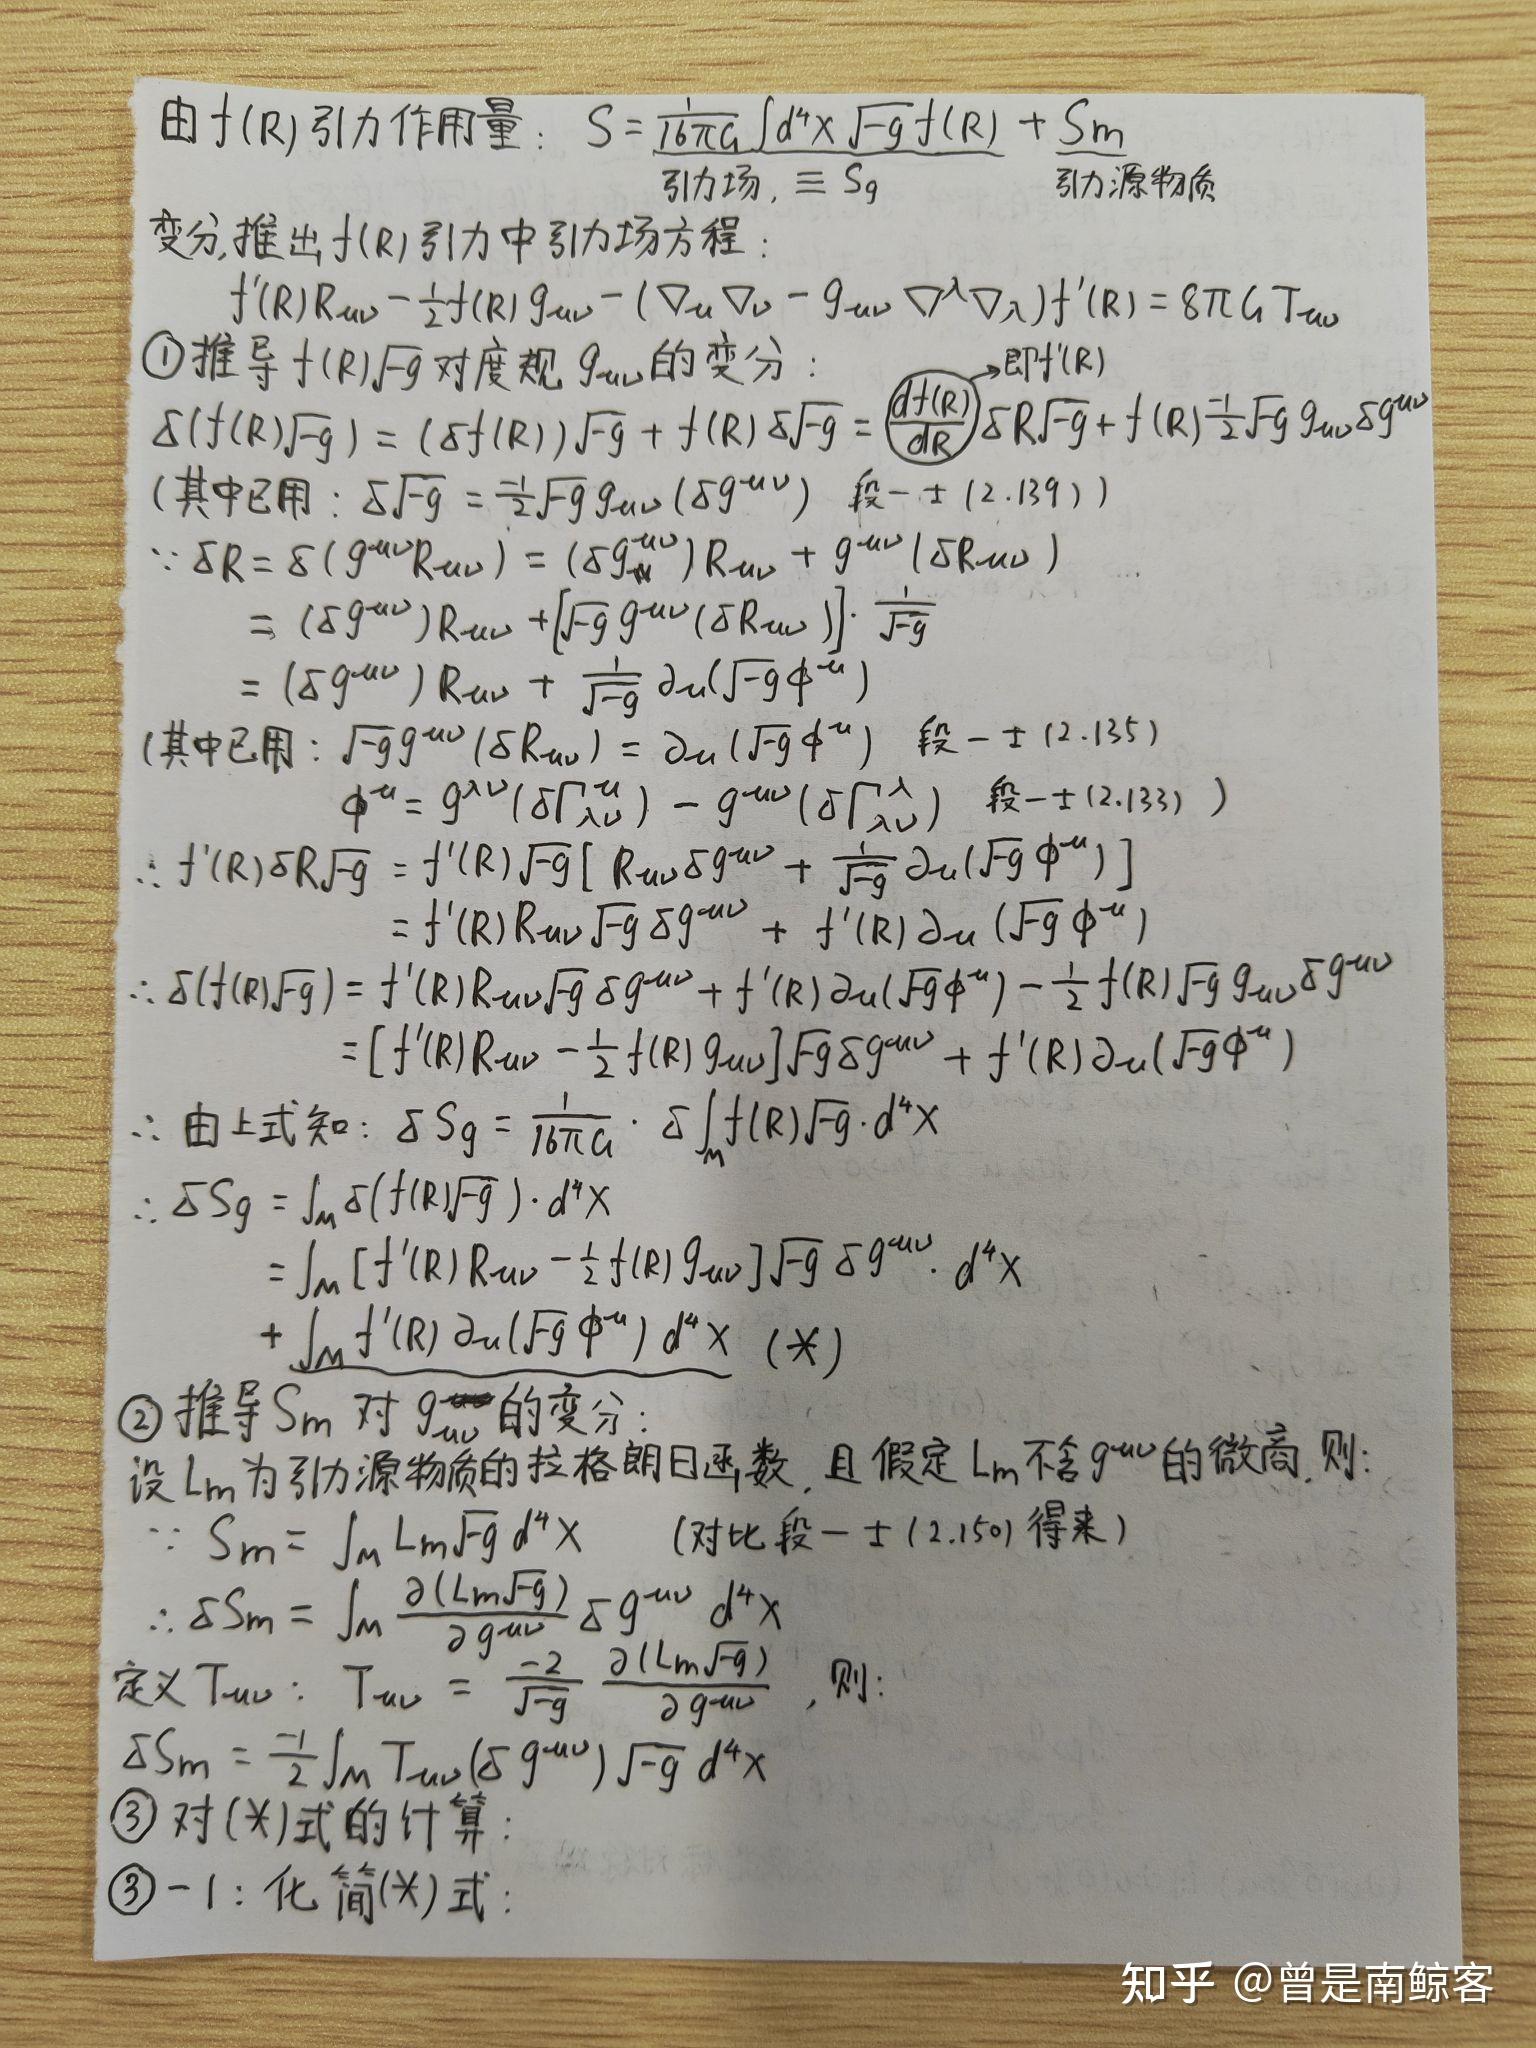 由f(R)引力作用量： S = 1/(16πG) ∫d⁴x √-g f(R) + Sm
引力场, ≡ Sg 引力源物质
变分,推出f(R)引力中引力场方程：
f'(R)Rμν - 1/2 f(R) gμν - (∇μ∇ν - gμν ∇^λ∇λ) f'(R) = 8πG Tμν
①推导f(R)√-g 对度规 gμν 的变分： →即f'(R)
δ(f(R)√-g) = (δf(R))√-g + f(R) δ√-g = df(R)/dR δR√-g + f(R) -1/2 √-g gμν δg^μν
(其中已用：δ√-g = -1/2 √-g gμν (δg^μν) 段一± (2.139))
∵ δR = δ(g^μν Rμν) = (δg^μν) Rμν + g^μν (δRμν)
= (δg^μν) Rμν + [√-g g^μν (δRμν)]· 1/√-g
= (δg^μν) Rμν + 1/√-g ∂μ(√-g ϕ^μ)
(其中已用：√-g g^μν (δRμν) = ∂μ(√-g ϕ^μ) 段一± (2.135)
ϕ^μ = g^λν (δΓ^μ_λν) - g^μν (δΓ^λ_λν) 段一± (2.133) )
∴ f'(R)δR√-g = f'(R)√-g [ Rμν δg^μν + 1/√-g ∂μ(√-g ϕ^μ) ]
= f'(R) Rμν √-g δg^μν + f'(R) ∂μ (√-g ϕ^μ)
∴ δ(f(R)√-g) = f'(R) Rμν √-g δg^μν + f'(R) ∂μ(√-g ϕ^μ) - 1/2 f(R) √-g gμν δg^μν
= [f'(R) Rμν - 1/2 f(R) gμν] √-g δg^μν + f'(R) ∂μ(√-g ϕ^μ)
∴ 由上式知：δSg = 1/(16πG) · δ∫_M f(R)√-g · d⁴x
∴ δSg = ∫_M δ(f(R)√-g) · d⁴x
= ∫_M [f'(R) Rμν - 1/2 f(R) gμν] √-g δg^μν · d⁴x
+ ∫_M f'(R) ∂μ(√-g ϕ^μ) d⁴x (*)
②推导Sm 对 gμν 的变分：
设Lm为引力源物质的拉格朗日函数, 且假定Lm不含g^μν的微商, 则：
∵ Sm = ∫_M Lm√-g d⁴x (对比段一± (2.150) 得来)
∴ δSm = ∫_M ∂(Lm√-g)/∂g^μν δg^μν d⁴x
定义Tμν： Tμν = -2/√-g ∂(Lm√-g)/∂g^μν , 则：
δSm = -1/2 ∫_M Tμν (δg^μν) √-g d⁴x
③对(*)式的计算：
③-1：化简(*)式：
知乎 @曾是南鲸客